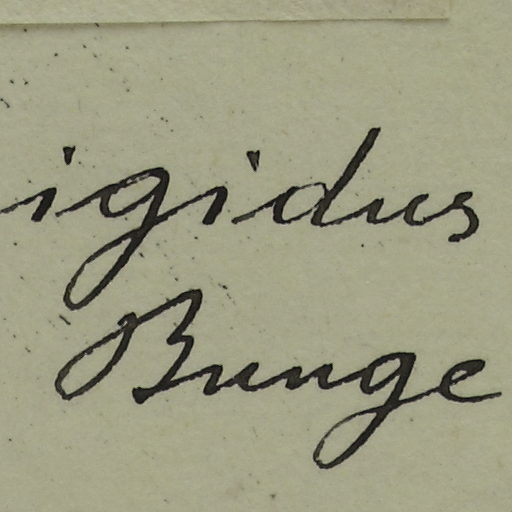 igidus
Bunge